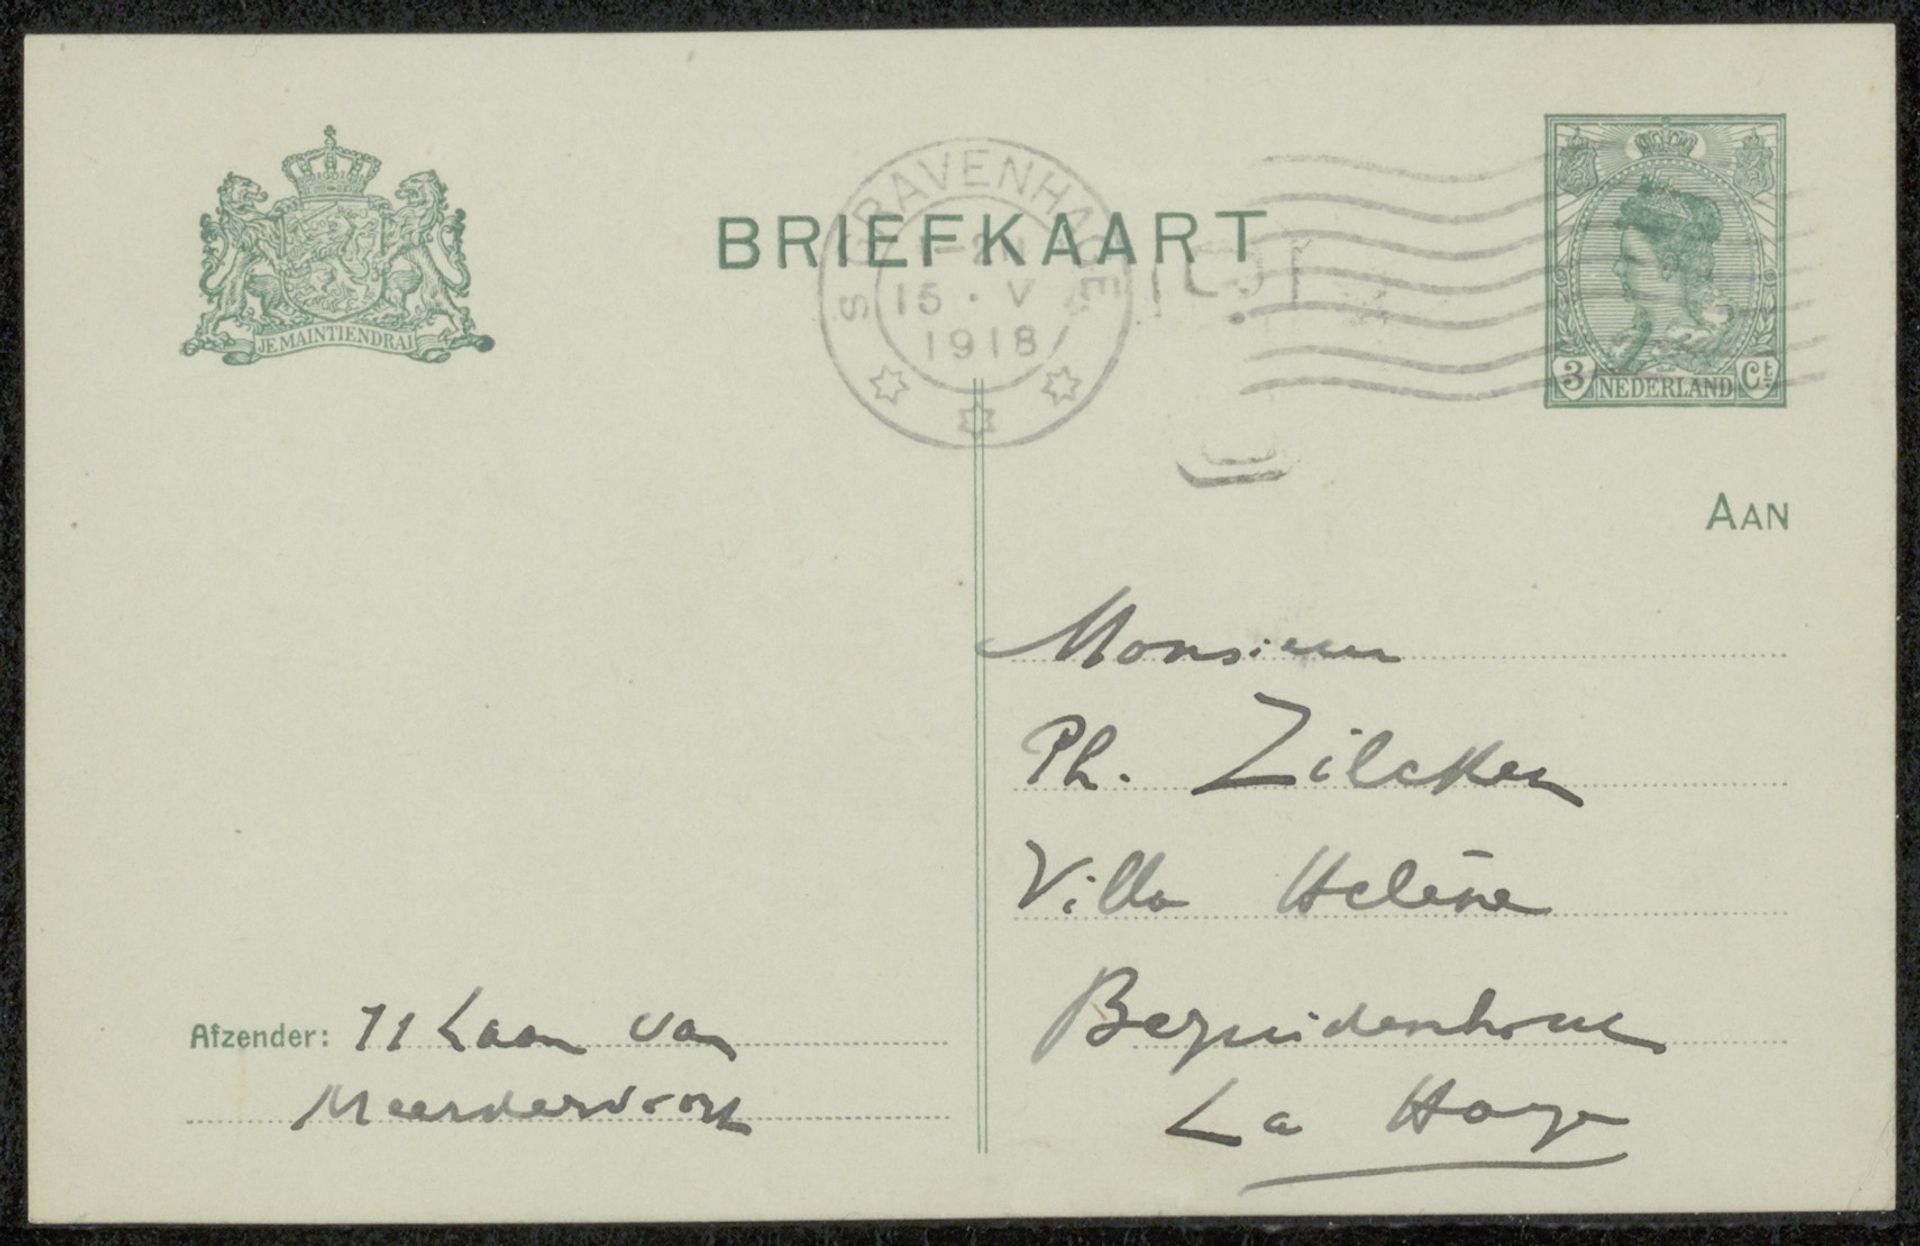 BRIEFKAART
JE MAINTIENDRAI
'S GRAVENHAGE
15 · V
1918
3 NEDERLAND Ct
AAN
Monsieur
Ph. Zilcken
Villa Helène
Bezuidenhout
La Haye
Afzender: 71 Laan van
Meerdervoort